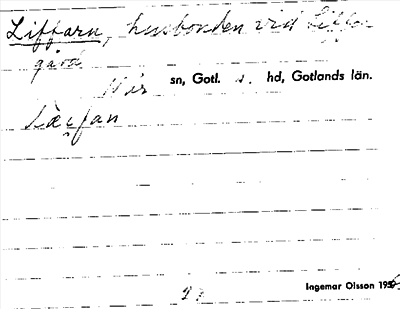 Liffarn, husbonden vid Liffor
gård
När sn, Gotl. s. hd, Gotlands län.
Läifan
Ingemar Olsson 195